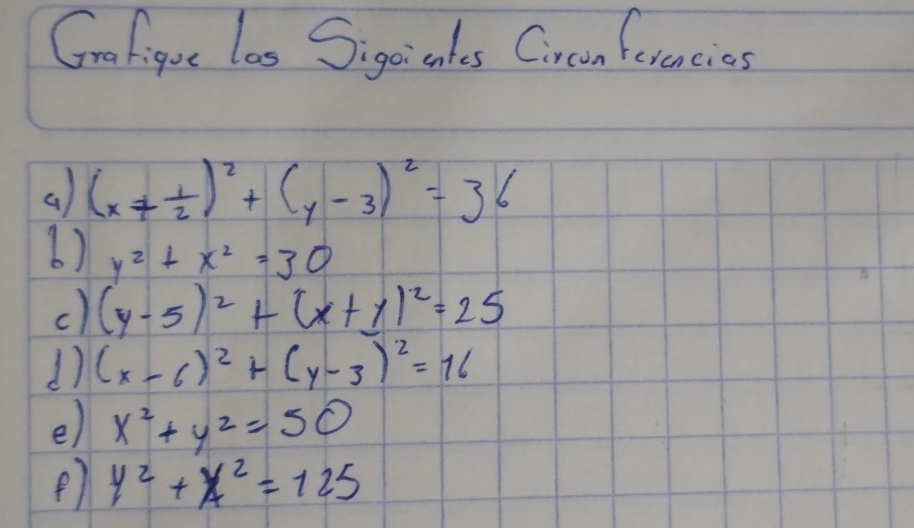 Grafique las Sigoientes Circunferencias
a) (x + 1/2)² + (y - 3)² = 36
b) y² + x² = 30
c) (y - 5)² + (x + 1)² = 25
d) (x - 6)² + (y - 3)² = 16
e) x² + y² = 50
f) y² + x² = 125